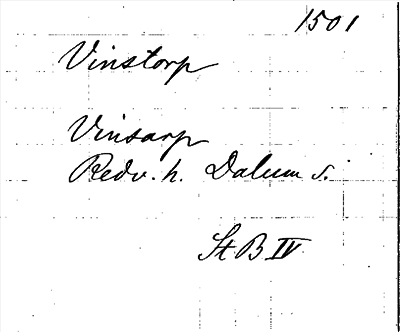 1501
Vinstorp
Vinsarp
Redv. h. Dalum s.
St B IV